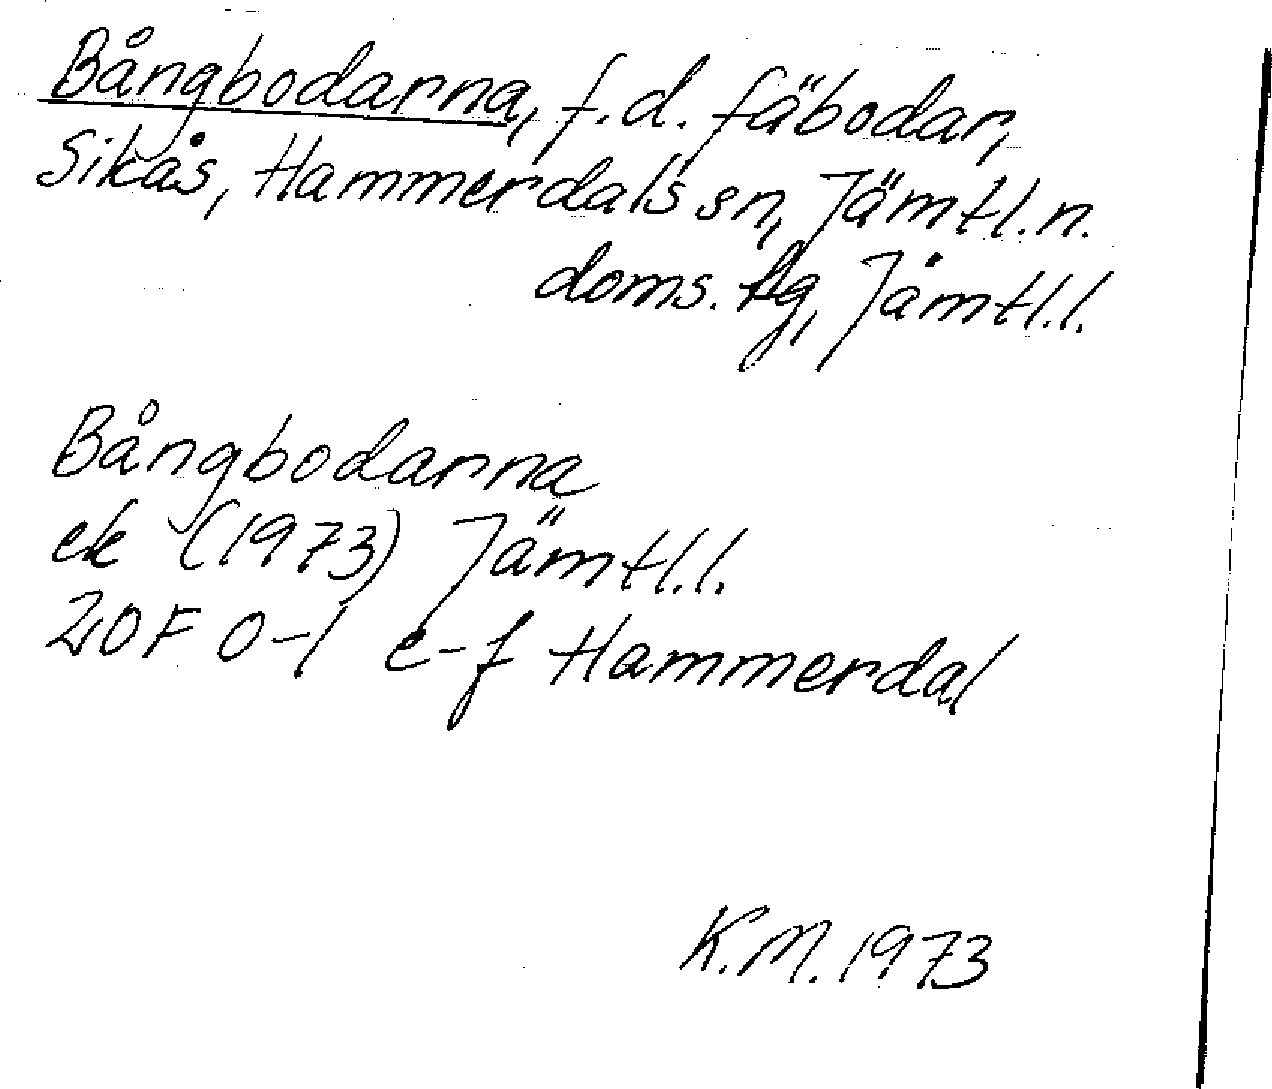 Bångbodarna, f.d. fäbodar,
Sikås, Hammerdals sn, Jämtl. n.
doms. tg, Jämtl. l.
Bångbodarna
ek (1973) Jämtl. l.
20F 0-1 e-f Hammerdal
K.M. 1973